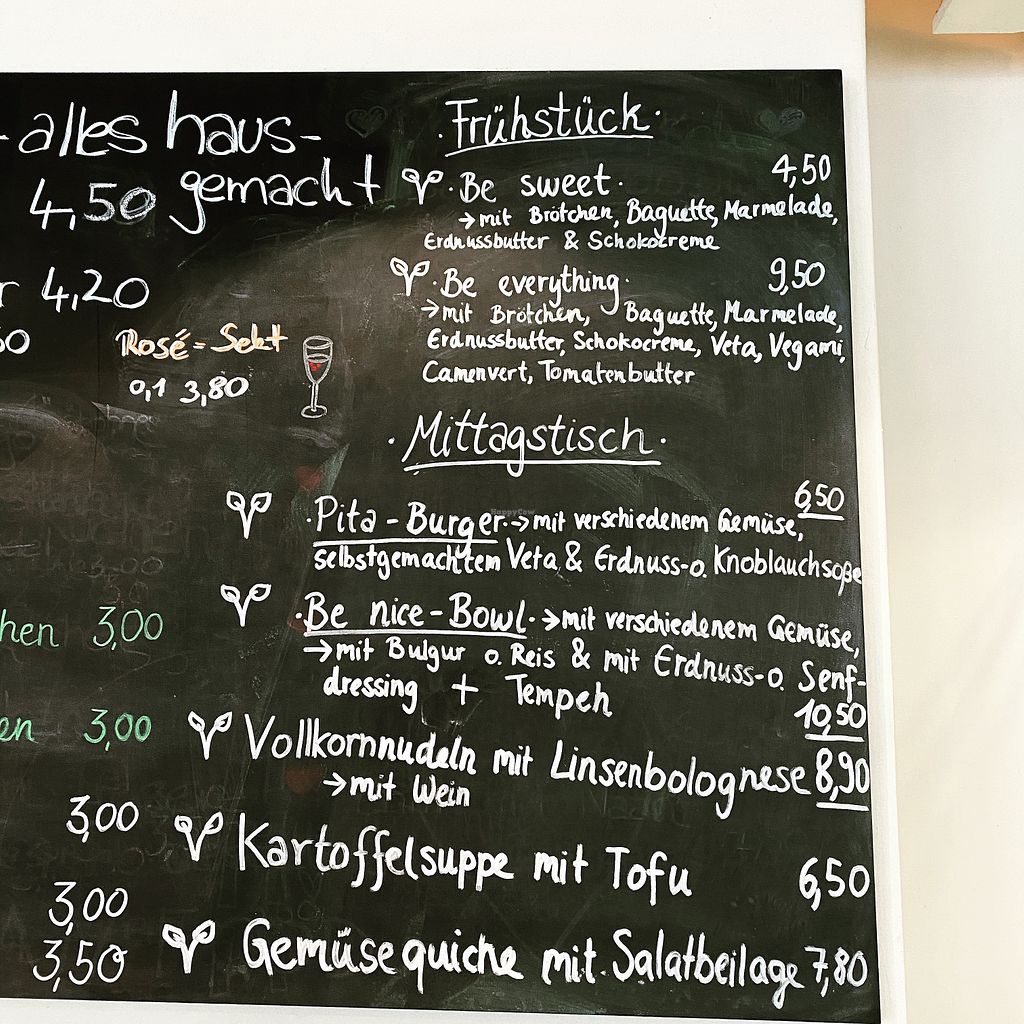 -alles haus-
4,50 gemacht
r 4,20
50
Rosé-Sekt
0,1 3,80
hen 3,00
en 3,00
3,00
3,00
3,50
·Frühstück·
·Be sweet· 4,50
→mit Brötchen, Baguette, Marmelade,
Erdnussbutter & Schokocreme
·Be everything· 9,50
→mit Brötchen, Baguette, Marmelade,
Erdnussbutter, Schokocreme, Veta, Vegami,
Camenvert, Tomatenbutter
·Mittagstisch·
6,50
·Pita-Burger·→mit verschiedenem Gemüse,
selbstgemachtem Veta & Erdnuss-o. Knoblauchsoße
·Be nice-Bowl·→mit verschiedenem Gemüse,
→mit Bulgur o. Reis & mit Erdnuss-o. Senf-
dressing + Tempeh
10,50
Vollkornnudeln mit Linsenbolognese 8,90
→mit Wein
Kartoffelsuppe mit Tofu 6,50
Gemüsequiche mit Salatbeilage 7,80
HappyCow